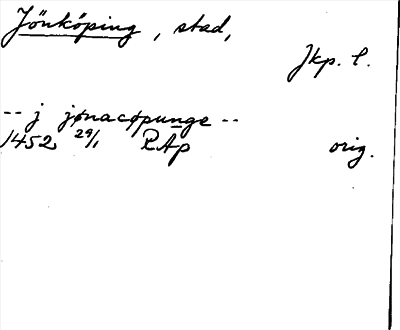 Jönköping, stad,
Jkp. l.
-- j jønacøpunge --
1452 29/1 RAp orig.